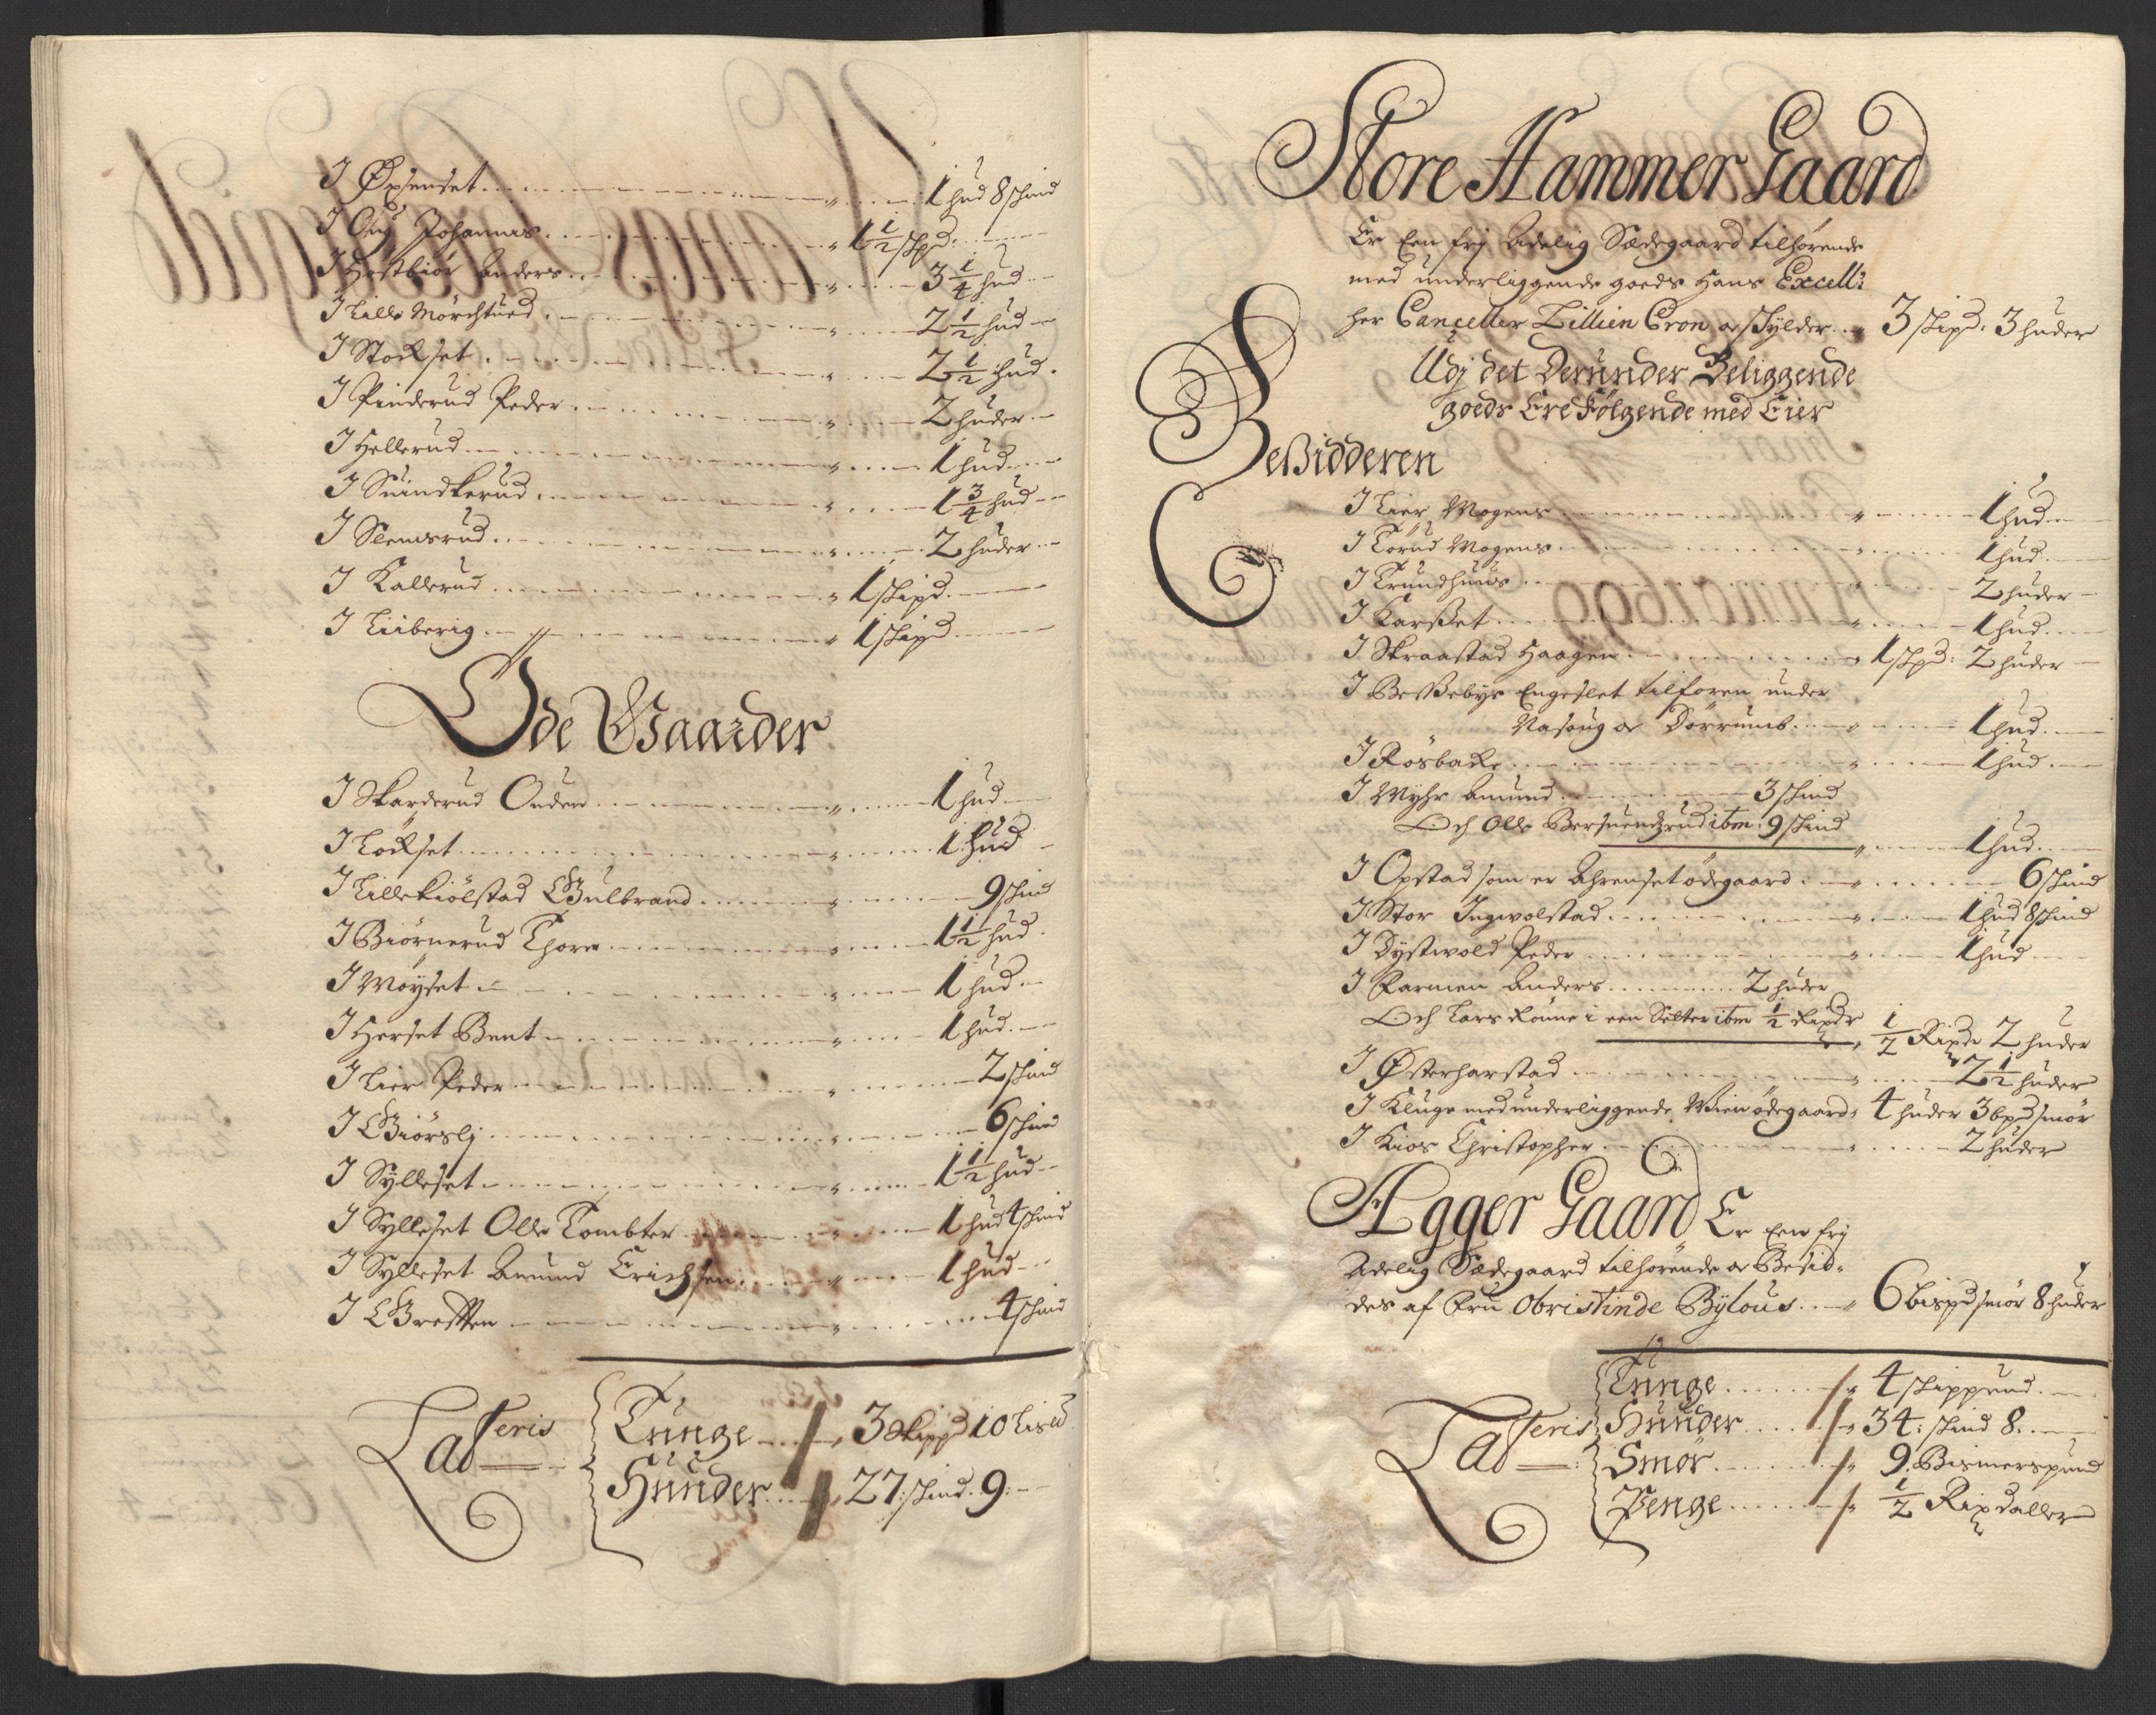 I Øxenset 1 hud 8 skind
I Øug Johannes 1 1/2 skpd:
I Hostbiør Anders 3 1/4 hud
I Lille Mørchtued 2 1/2 hud
I Stockset 2 1/2 hud.
I Pinderud Peder 2 huder
I Hellerud 1 hud
I Suindkerud 1 3/4 hud
I Slemsrud 2 huder
I Kallerud 1 skipd.
I Liiberig 1 skipd
Øde Gaarder
I Skarderud Ouden 1 hud
I Lockset 1 hud
I Lille Kiølstad Gulbrand 9 skind
I Biørnerud Thore 1 1/2 hud.
I Møyset 1 hud
I Herset Bent 1 hud.
I Lier Peder 2 skind
I Giørslj 6 skind
I Sylleset 1 1/2 hud
I Sylleset Olle Tombter 1 hud 4 skind
I Sylleset Amund Erichsen 1 hud
I Gresten 4 skind
Lateris Tunge 3 Skippd 10 Lispd
Hunder 27: skind. 9:
Store Hammer Gaard
Er Een frj Adelig Sædegaard tilhørende
med underliggende goeds Hans Excell:
her Canceller Lillien Cron og skylder 3 skipd: 3 huder
Udj det Derunder Beliggende
goeds Ere Følgende med Eier
Besidderen
I Lier Mogens 1 hud
I Torud Mogens 1 hud
I Trundhuus 2 huder
I Karsset 1 hud
I Skraastad Haagen 1 skpd: 2 huder
I Bessebye Engeslet tilforen under
Nasoug og Dørrumb 1 hud.
I Rosbacke 1 hud
I Myhr Amund 3 skind
Och Olle Bersuendzrud ibm: 9 skind
1 hud.
I Opstad som er Ahrenset ødegaard 6 skind
I Stor Ingwolstad 1 hud 8 skind
I Dystwold Peder 1 hud
I Karmen Anders 2 huder
Och Lars Rønne i een Selter ibm 1/2 Rixdr 1/2 Rixdr 2 huder
I Østerharstad 2 1/2 huder
I Kluge med underliggende Mien ødegaard 4 huder 3 bpd smør
I Kios Christopher 2 huder
Ægger Gaard Er Een frj
Adelig Sædegaard tilhørende og Besid=
des af Fru Obristinde Bylous 6 bispd smør 8 huder
Lateris Tunge 4 skippund.
Hunder 34: skind 8.
Smør 9. Bismerpund
Penge 1/2 Rixdaller